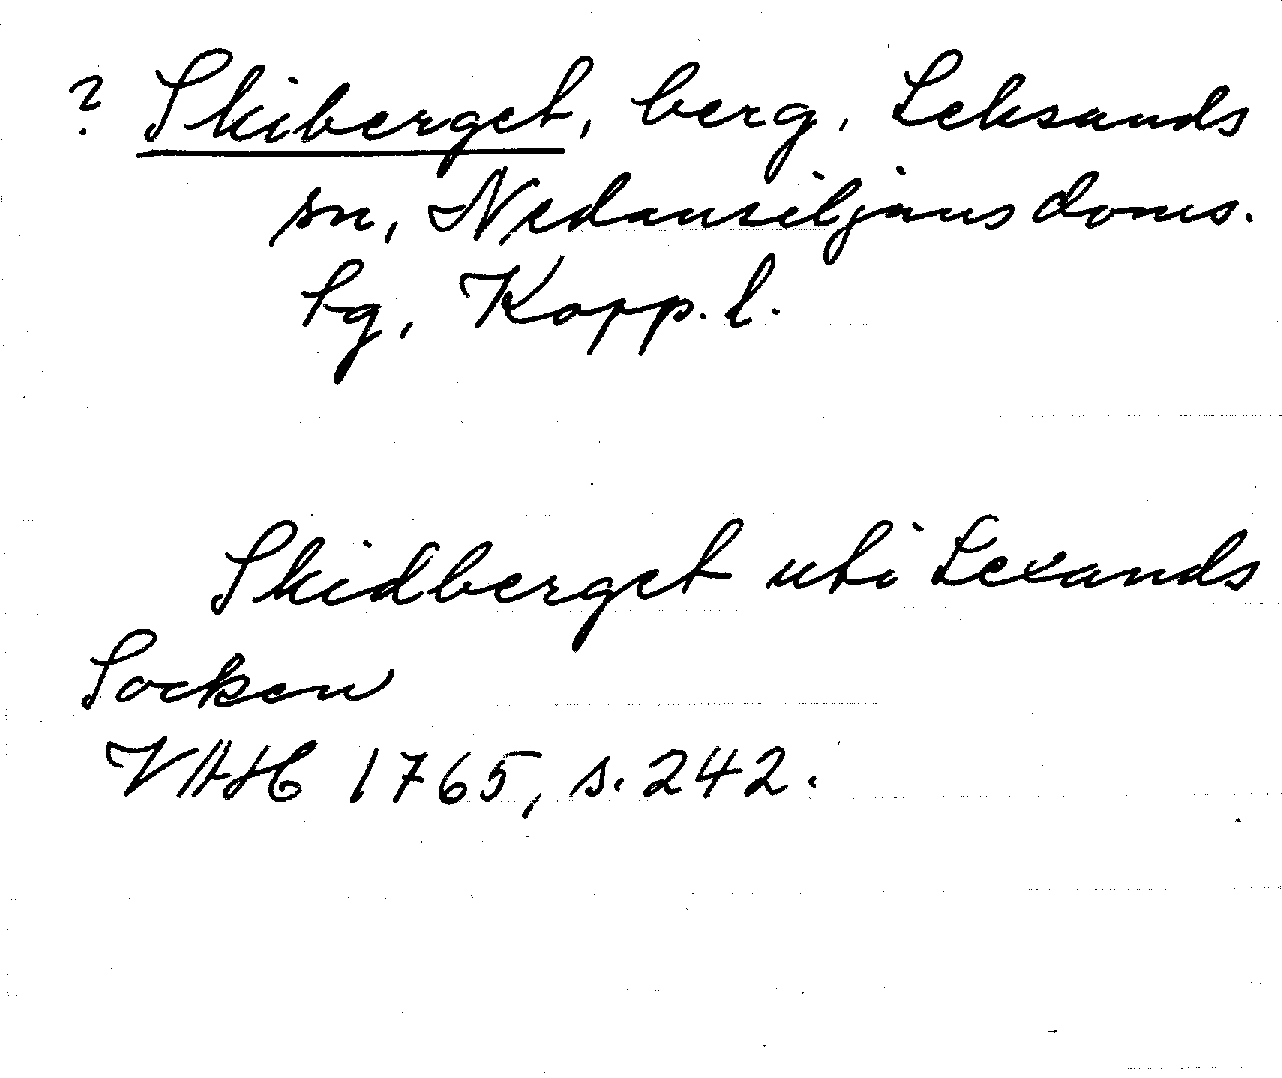 ? Skiberget, berg, Leksands
sn, Nedansiljans doms.
sg, Kopp. l.
Skidberget uti Lexands
Socken
VAH 1765, s. 242.